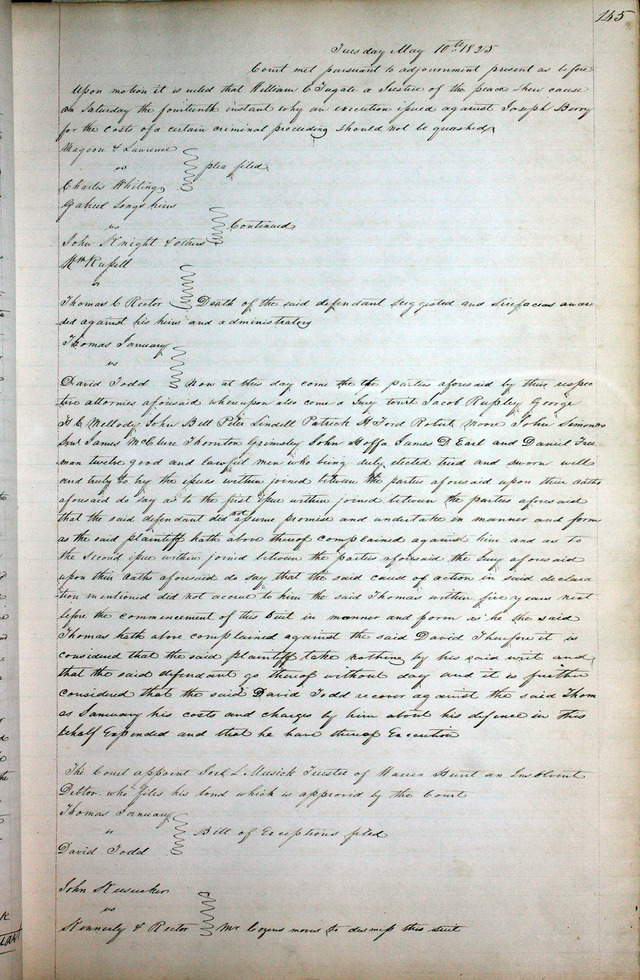 145
Tuesday May 10th 1825
Court met pursuant to adjournment present as before
Upon motion it is ruled that William C a Justice of the peace shew cause
on Saturday the fourteenth instant why an execution issued against Joseph Berry
for the costs of a certain criminal proceeding should not be quashed
Magoon & Lawrence
vs plea filed
Charles Whiting
Gabriel Longs heirs
vs Continued
John Knight & others
Wm Russell
v
Thomas C Rector Death of the said defendant suggested and Scirefacias awar
ded against his heirs and administrators
Thomas January
vs
David Todd Now at this day come the the parties aforesaid by their respec
tive attornies aforesaid whereupon also come a Jury towit Jacob Rupley George
H C Mellody John Bell Peter Lindell Patrick M Ford Robert Moore John Simonds
Jnr James McClure Thornton Grimsley John Hoffa James D Earl and Daniel Free
man twelve good and lawful men who being duly elected tried and sworn well
and truly to try the issues within joined between the parties aforesaid upon their oaths
aforesaid do say as to the first issue within joined between the parties aforesaid
that the said defendant did not assume promise and undertake in manner and form
as the said plaintiff hath above thereof complained against him and as to
the second issue within joined between the parties aforesaid the Jury aforesaid
upon their oaths aforesaid do say that the said cause of action in said declara
tion mentioned did not accrue to him the said Thomas within five years next
before the commencement of this Suit in manner and form as he the said
Thomas hath above complained against the said David Therefore it is
considered that the said plaintiff take nothing by his said writ and
that the said defendant go thereof without day and it is further
considered that the said David Todd recover against the said Thom
as January his costs and charges by him about his defence in this
behalf Expended and that he have thereof Execution
The Court appoint L Musick Trustee of Warren Hunt an Insolvent
Debtor who files his bond which is approved by the Court
Thomas January
vs Bill of Exceptions filed
David Todd
John
vs
Kennerly & Rector Mr Cozens moves to dismiss this suit